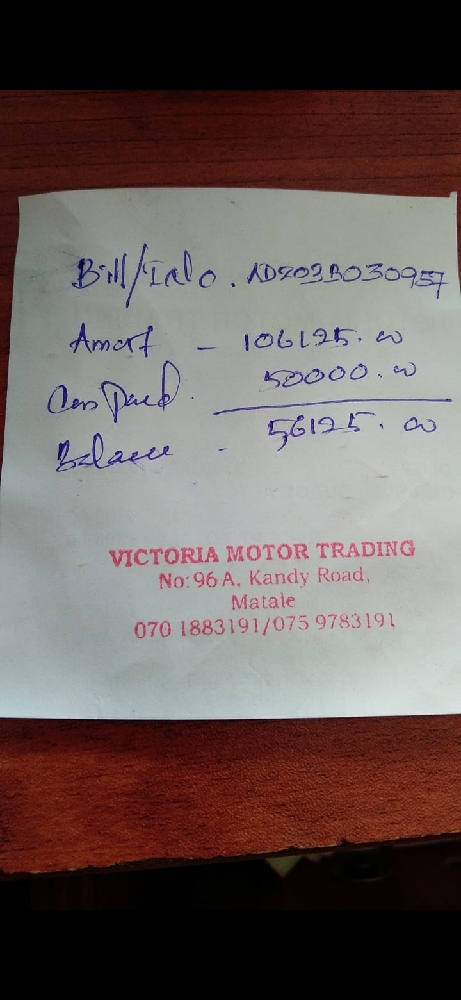 Bill/Inlo. AD203B030957
Amont - 106125.00
Cas Paied. 50000.00
Balance - 56125.00
VICTORIA MOTOR TRADING
No: 96 A, Kandy Road,
Matale
070 1883191/075 9783191